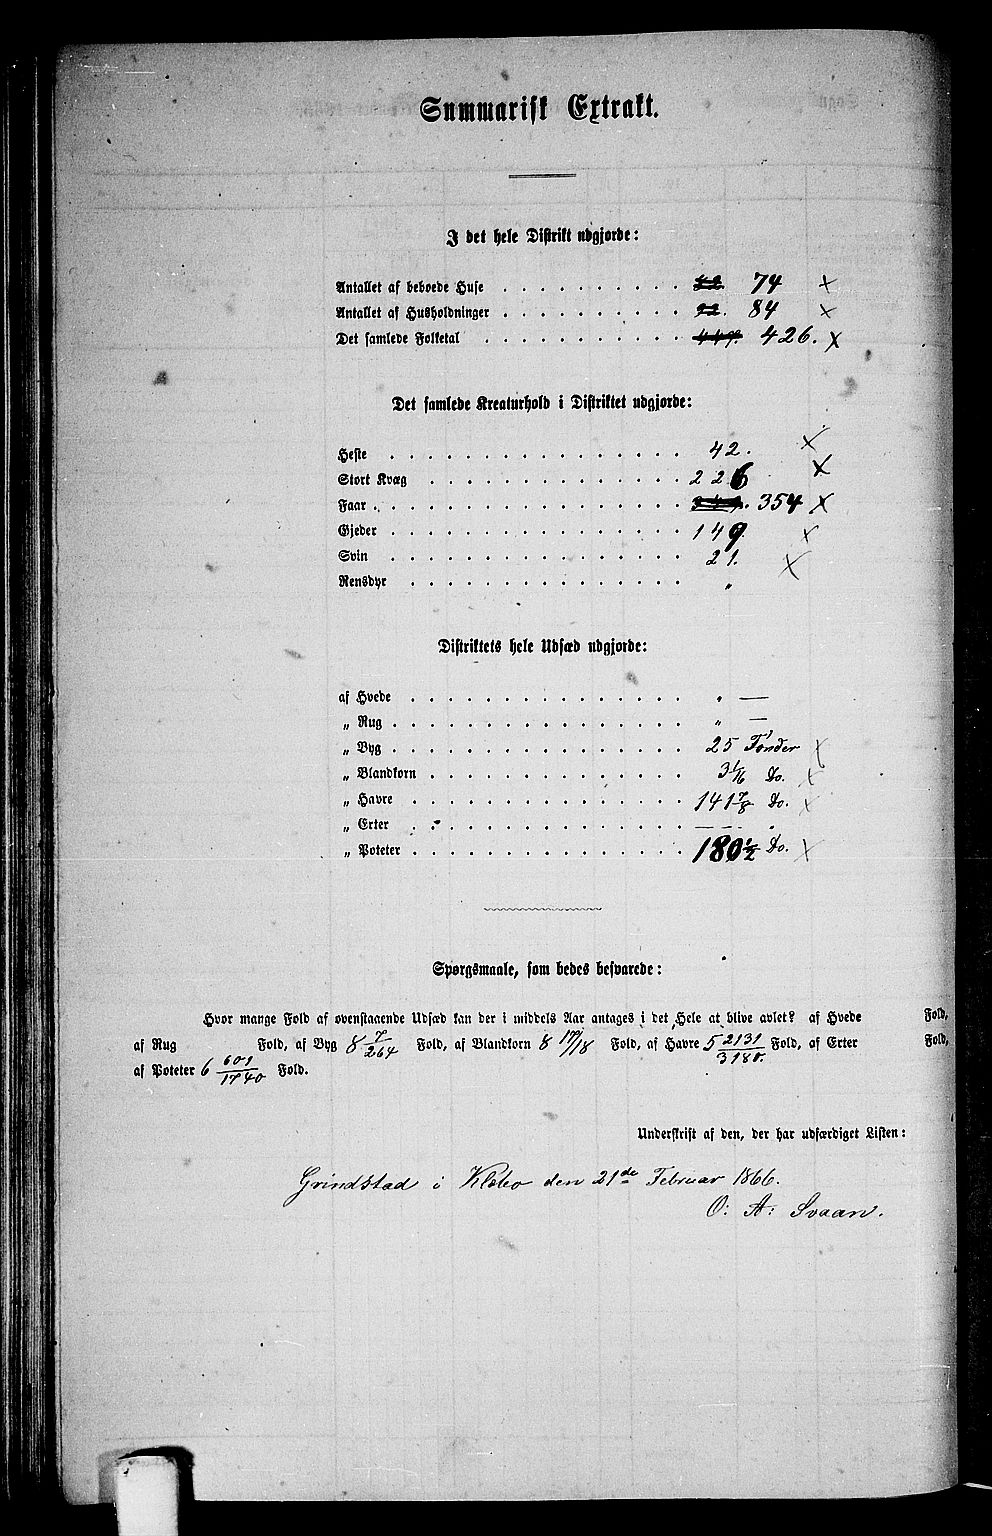 Summarisk Extrakt.
I det hele Distrikt udgjorde:
Antallet af beboede Huse . . . . . . . . . . 74 ×
Antallet af Husholdninger . . . . . . . . . . 92. 84 ×
Det samlede Folketal . . . . . . . . . . . 449. 426. ×
Det samlede Kreaturhold i Distriktet udgjorde:
Heste . . . . . . . . . . . . . . . . 42. ×
Stort Kvæg . . . . . . . . . . . . . . 226 ×
Faar . . . . . . . . . . . . . . . . . 349. 354 ×
Gjeder . . . . . . . . . . . . . . . . 149. ×
Svin . . . . . . . . . . . . . . . . 21. ×
Rensdyr . . . . . . . . . . . . . . . „
Distriktets hele Udsæd udgjorde:
af Hvede . . . . . . . . . . . . . . . „ —
„ Rug . . . . . . . . . . . . . . . . „ —
„ Byg . . . . . . . . . . . . . . . . 25 Tønder ×
„ Blandkorn . . . . . . . . . . . . . . 3 1/16 Do. ×
„ Havre . . . . . . . . . . . . . . . 141 7/8 Do. ×
„ Erter . . . . . . . . . . . . . . . — — — „
„ Poteter . . . . . . . . . . . . . . . 180 1/2 Do. ×
Spørgsmaale, som bedes besvarede:
Hvor mange Fold af ovenstaaende Udsæd kan der i middels Aar antages i det Hele at blive avlet? af Hvede Fold,
af Rug Fold, af Byg 8 7/264 Fold, af Blandkorn 8 17/18 Fold, af Havre 5 2131/3180. Fold, af Erter Fold,
af Poteter 6 601/1740 Fold.
Underskrift af den, der har udfærdiget Listen:
Grindstad i Klæbo den 21de Februar 1866.
O: A: Svaan.